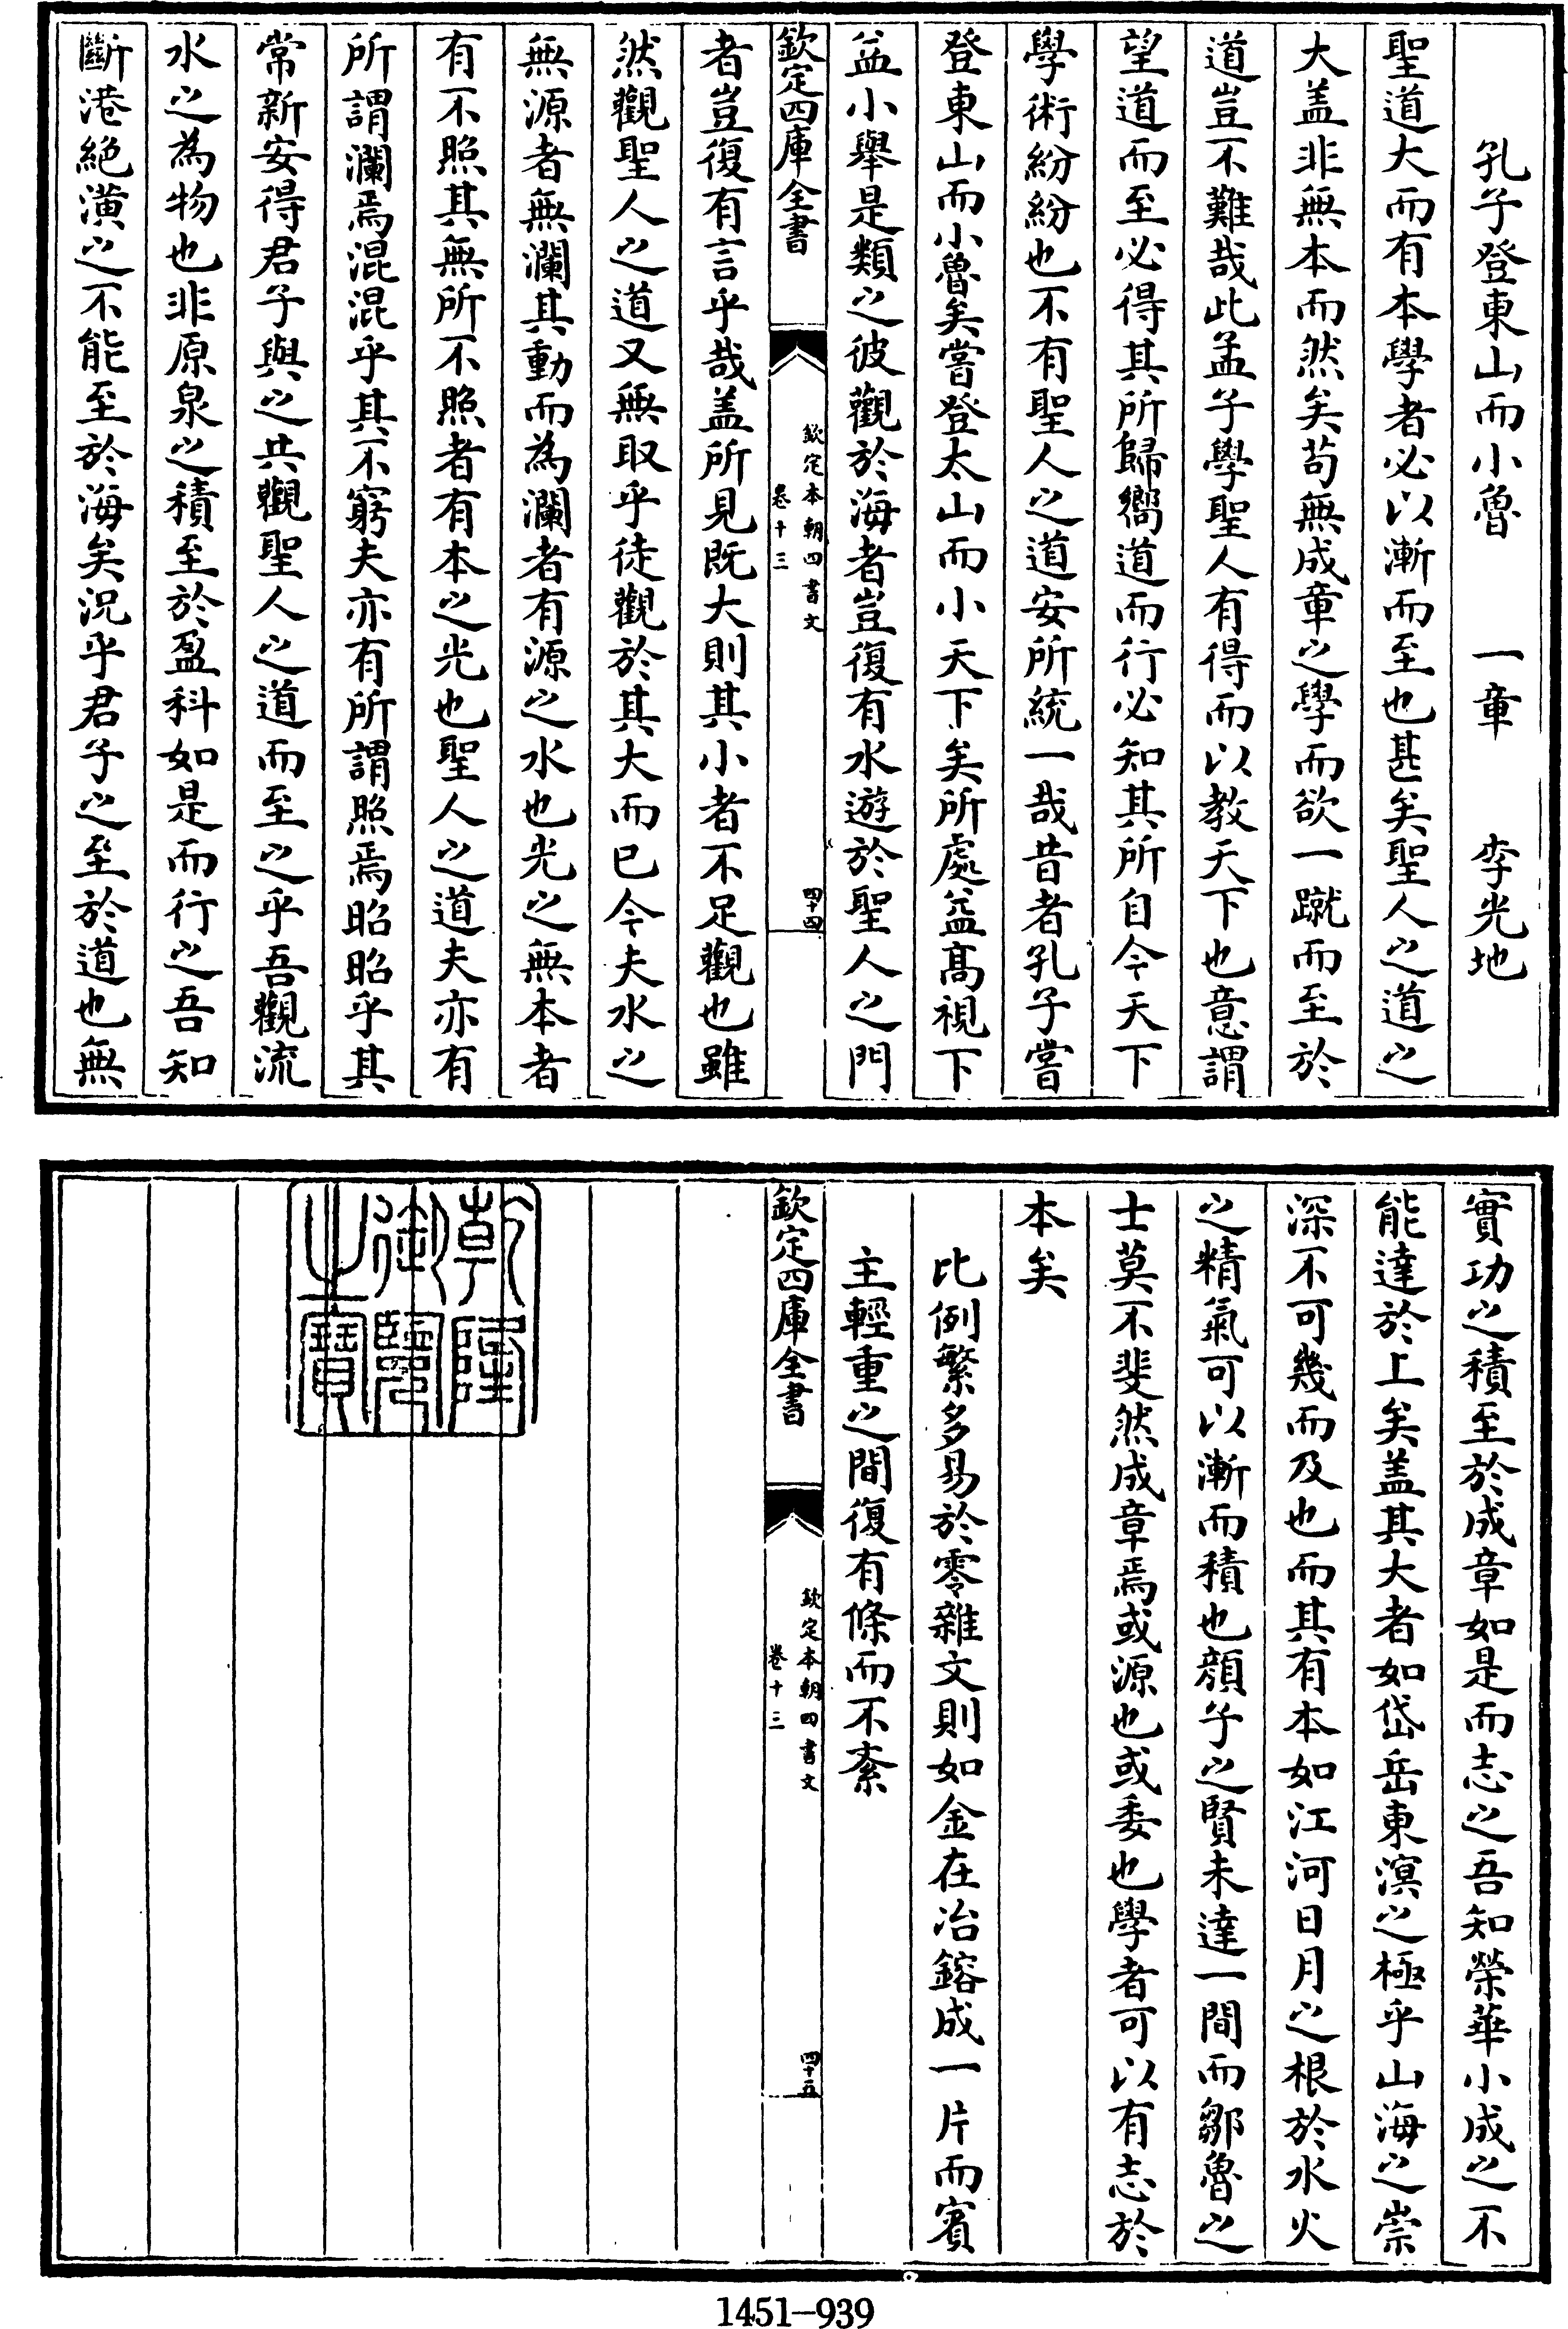 孔子登東山而小魯　一章　李光地
聖道大而有本學者必以漸而至也甚矣聖人之道之
大盖非無本而然矣苟無成章之學而欲一蹴而至於
道豈不難哉此孟子學聖人有得而以教天下也意謂
望道而至必得其所歸嚮道而行必知其所自今天下
學術紛紛也不有聖人之道安所統一哉昔者孔子嘗
登東山而小魯矣嘗登太山而小天下矣所處益高視下
益小舉是類之彼觀於海者豈復有水遊於聖人之門
欽定四庫全書
欽定本朝四書文
卷十三
四十四
者豈復有言乎哉盖所見既大則其小者不足觀也雖
然觀聖人之道又無取乎徒觀於其大而已今夫水之
無源者無瀾其動而為瀾者有源之水也光之無本者
有不照其無所不照者有本之光也聖人之道夫亦有
所謂瀾焉混混乎其不窮夫亦有所謂照焉昭昭乎其
常新安得君子與之共觀聖人之道而至之乎吾觀流
水之為物也非原泉之積至於盈科如是而行之吾知
斷港絕潢之不能至於海矣況乎君子之至於道也無
實功之積至於成章如是而志之吾知榮華小成之不
能達於上矣盖其大者如岱岳東溟之極乎山海之崇
深不可幾而及也而其有本如江河日月之根於水火
之精氣可以漸而積也顔子之賢未達一間而鄒魯之
士莫不斐然成章焉或源也或委也學者可以有志於
本矣
比例繁多易於零雜文則如金在冶鎔成一片而賓
主輕重之間復有條而不紊
欽定四庫全書
欽定本朝四書文
卷十三
四十五
乾隆御覽之寶
1451-939